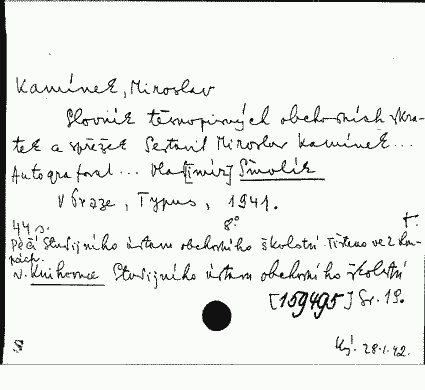 Kamínek, Miroslav
Slovník těsnopisných obchodních zkra-
tek a spřežek Sestavil Miroslav Kamínek...
Autografoval... Vlad[imír] Smolík
V Praze, Typus, 1941.
44 s. 8° t.
Péčí Studijního ústavu obchodního školství. Tištěno ve 2 slou-
pcích.
v. Knihovna Studijního ústavu obchodního školství
[159495] Sv. 19.
S Ký. 28.1.42.